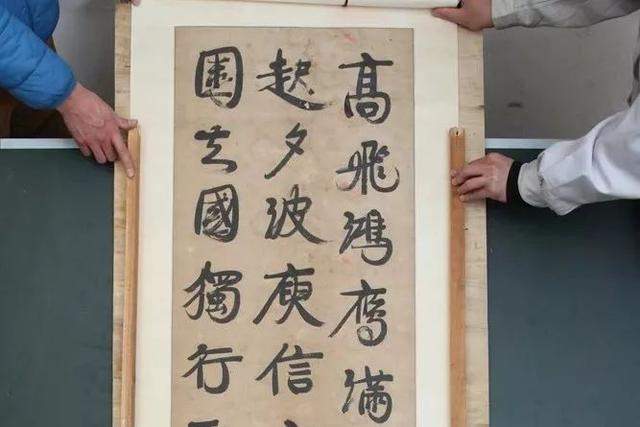 高飛鴻鴈滿
起夕波庾信
園去國獨行